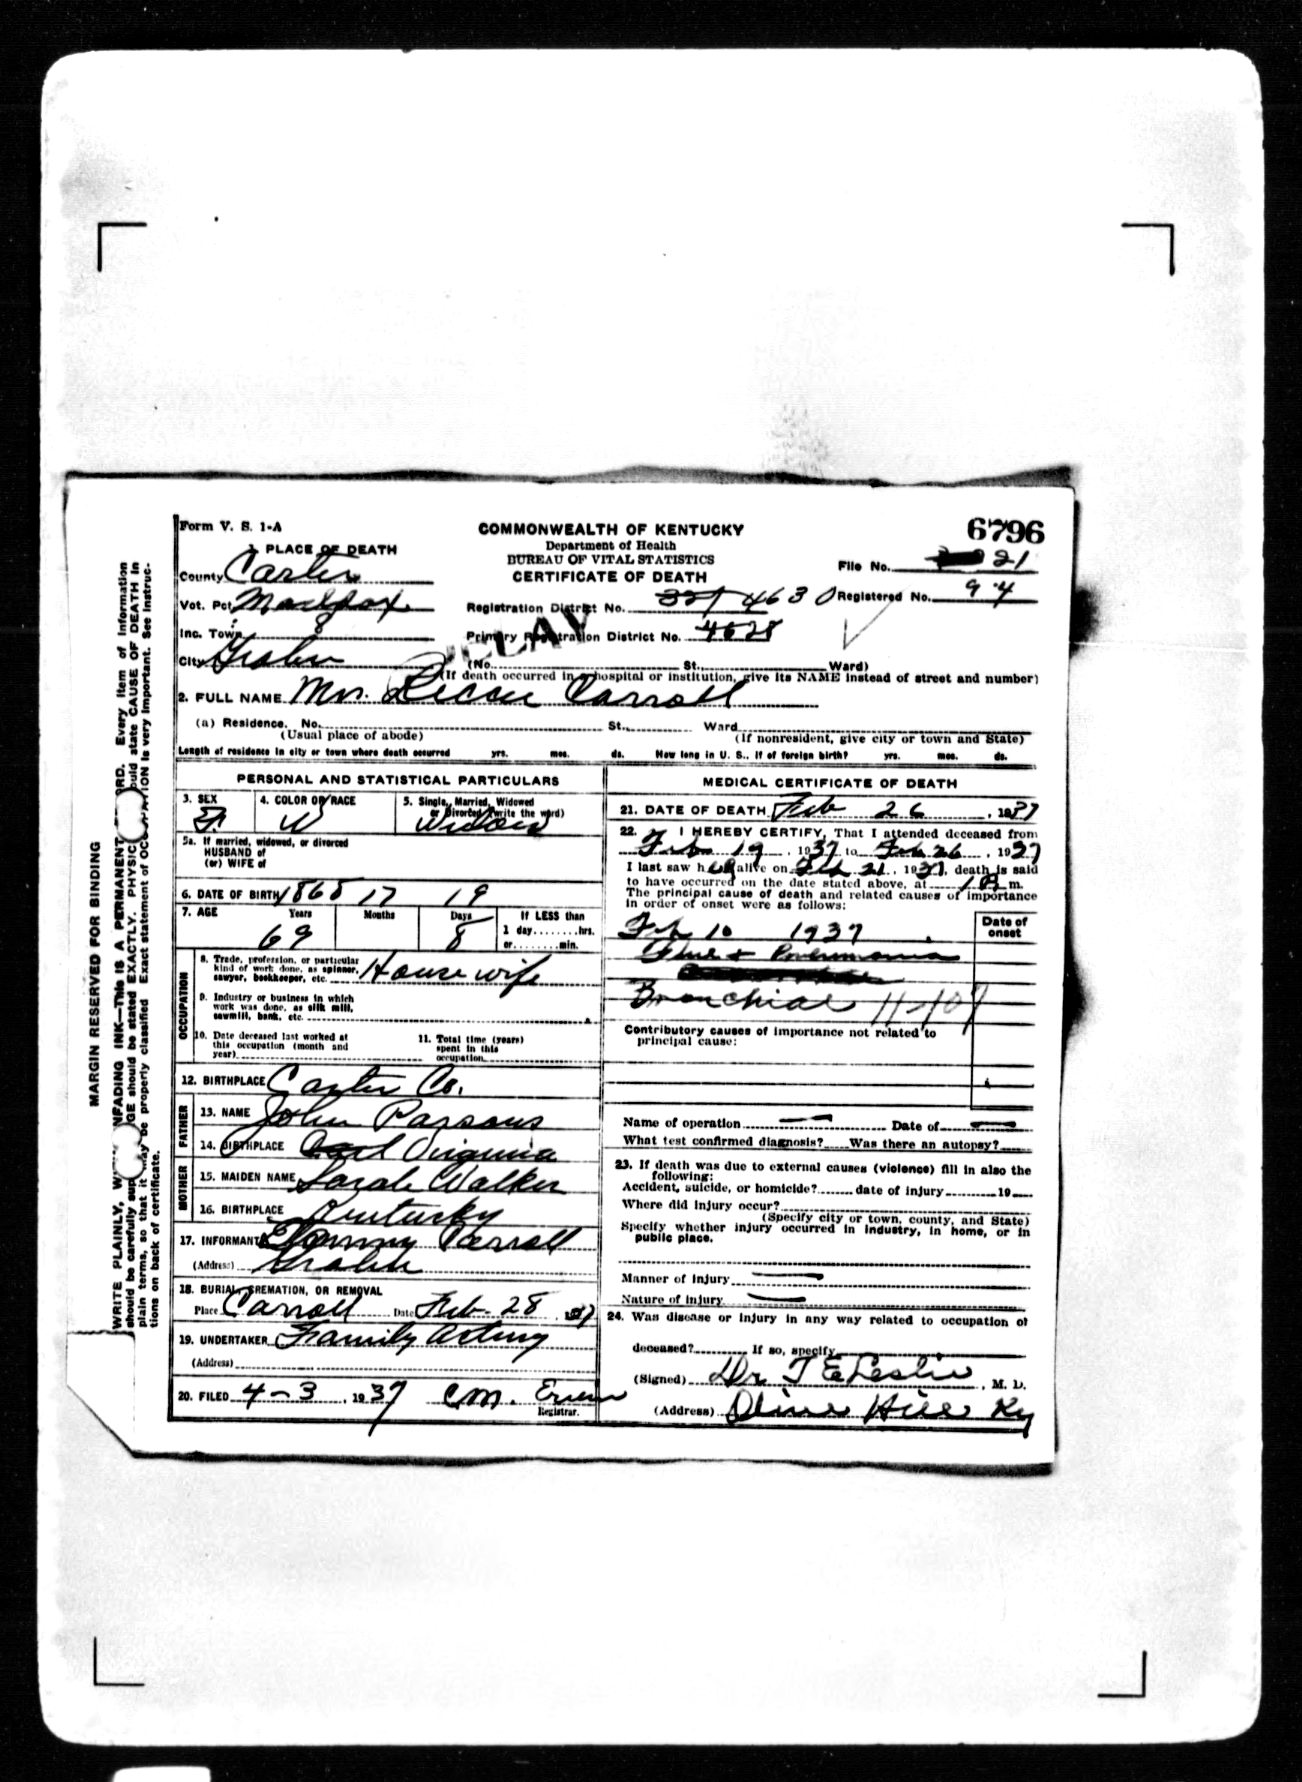 Form V. S. 1-A
COMMONWEALTH OF KENTUCKY
6796
Department of Health
BUREAU OF VITAL STATISTICS
CERTIFICATE OF DEATH
1. PLACE OF DEATH
County Carter
File No. 21
Vot. Pct.
Registration District No. 4630 Registered No. 94
Inc. Town
Primary Registration District No. 4628
DELAY
City Grahn
(No. St., Ward)
(If death occurred in a hospital or institution, give its NAME instead of street and number)
2. FULL NAME Mrs. Carroll
(a) Residence. No. St., Ward
(Usual place of abode) (If nonresident, give city or town and State)
Length of residence in city or town where death occurred yrs. mos. ds. How long in U. S., if of foreign birth? yrs. mos. ds.
PERSONAL AND STATISTICAL PARTICULARS
3. SEX F. 4. COLOR OR RACE W 5. Single, Married, Widowed or Divorced (write the word) Widow
5a. If married, widowed, or divorced
HUSBAND of
(or) WIFE of
6. DATE OF BIRTH 1868 17 19
7. AGE Years 69 Months Days 8 If LESS than
1 day........hrs.
or........min.
OCCUPATION
8. Trade, profession, or particular
kind of work done, as spinner,
sawyer, bookkeeper, etc. House wife
9. Industry or business in which
work was done, as silk mill,
sawmill, bank, etc.
10. Date deceased last worked at
this occupation (month and
year)
11. Total time (years)
spent in this
occupation
12. BIRTHPLACE Carter Co.
FATHER
13. NAME John Parsons
14. BIRTHPLACE Virginia
MOTHER
15. MAIDEN NAME Sarah Walker
16. BIRTHPLACE Kentucky
17. INFORMANT
(Address) Grahn
18. BURIAL, CREMATION, OR REMOVAL
Place Carroll Date Feb. 28 1937
19. UNDERTAKER Family Acting
(Address)
20. FILED 4-3, 1937 C M.
Registrar.
MEDICAL CERTIFICATE OF DEATH
21. DATE OF DEATH Feb 26, 1937
22. I HEREBY CERTIFY, That I attended deceased from
Feb 19, 1937 to Feb 26, 1937
I last saw her alive on Feb 21, 1937, death is said
to have occurred on the date stated above, at m.
The principal cause of death and related causes of importance
in order of onset were as follows:
Date of onset
Feb 10 1937
Flue + Pneumonia
Bronchial 11-107
Contributory causes of importance not related to
principal cause:
Name of operation — Date of —
What test confirmed diagnosis? Was there an autopsy?
23. If death was due to external causes (violence) fill in also the
following:
Accident, suicide, or homicide? date of injury 19
Where did injury occur?
(Specify city or town, county, and State)
Specify whether injury occurred in industry, in home, or in
public place.
Manner of injury —
Nature of injury —
24. Was disease or injury in any way related to occupation of
deceased? If so, specify
(Signed) Dr J E Leslie, M. D.
(Address) Olive Hill Ky
MARGIN RESERVED FOR BINDING